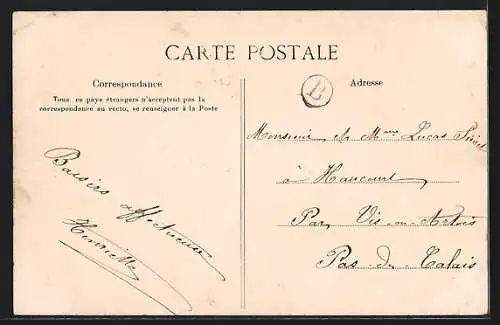 CARTE POSTALE
Correspondance
Tous ces pays étrangers n'acceptent pas la
correspondance au recto, se renseigner à la Poste
Baisers affectueux
Henriette
Adresse
B
Monsieur et Mme Lucas
à Haucourt
Par Vis-en-Artois
Pas-de-Calais